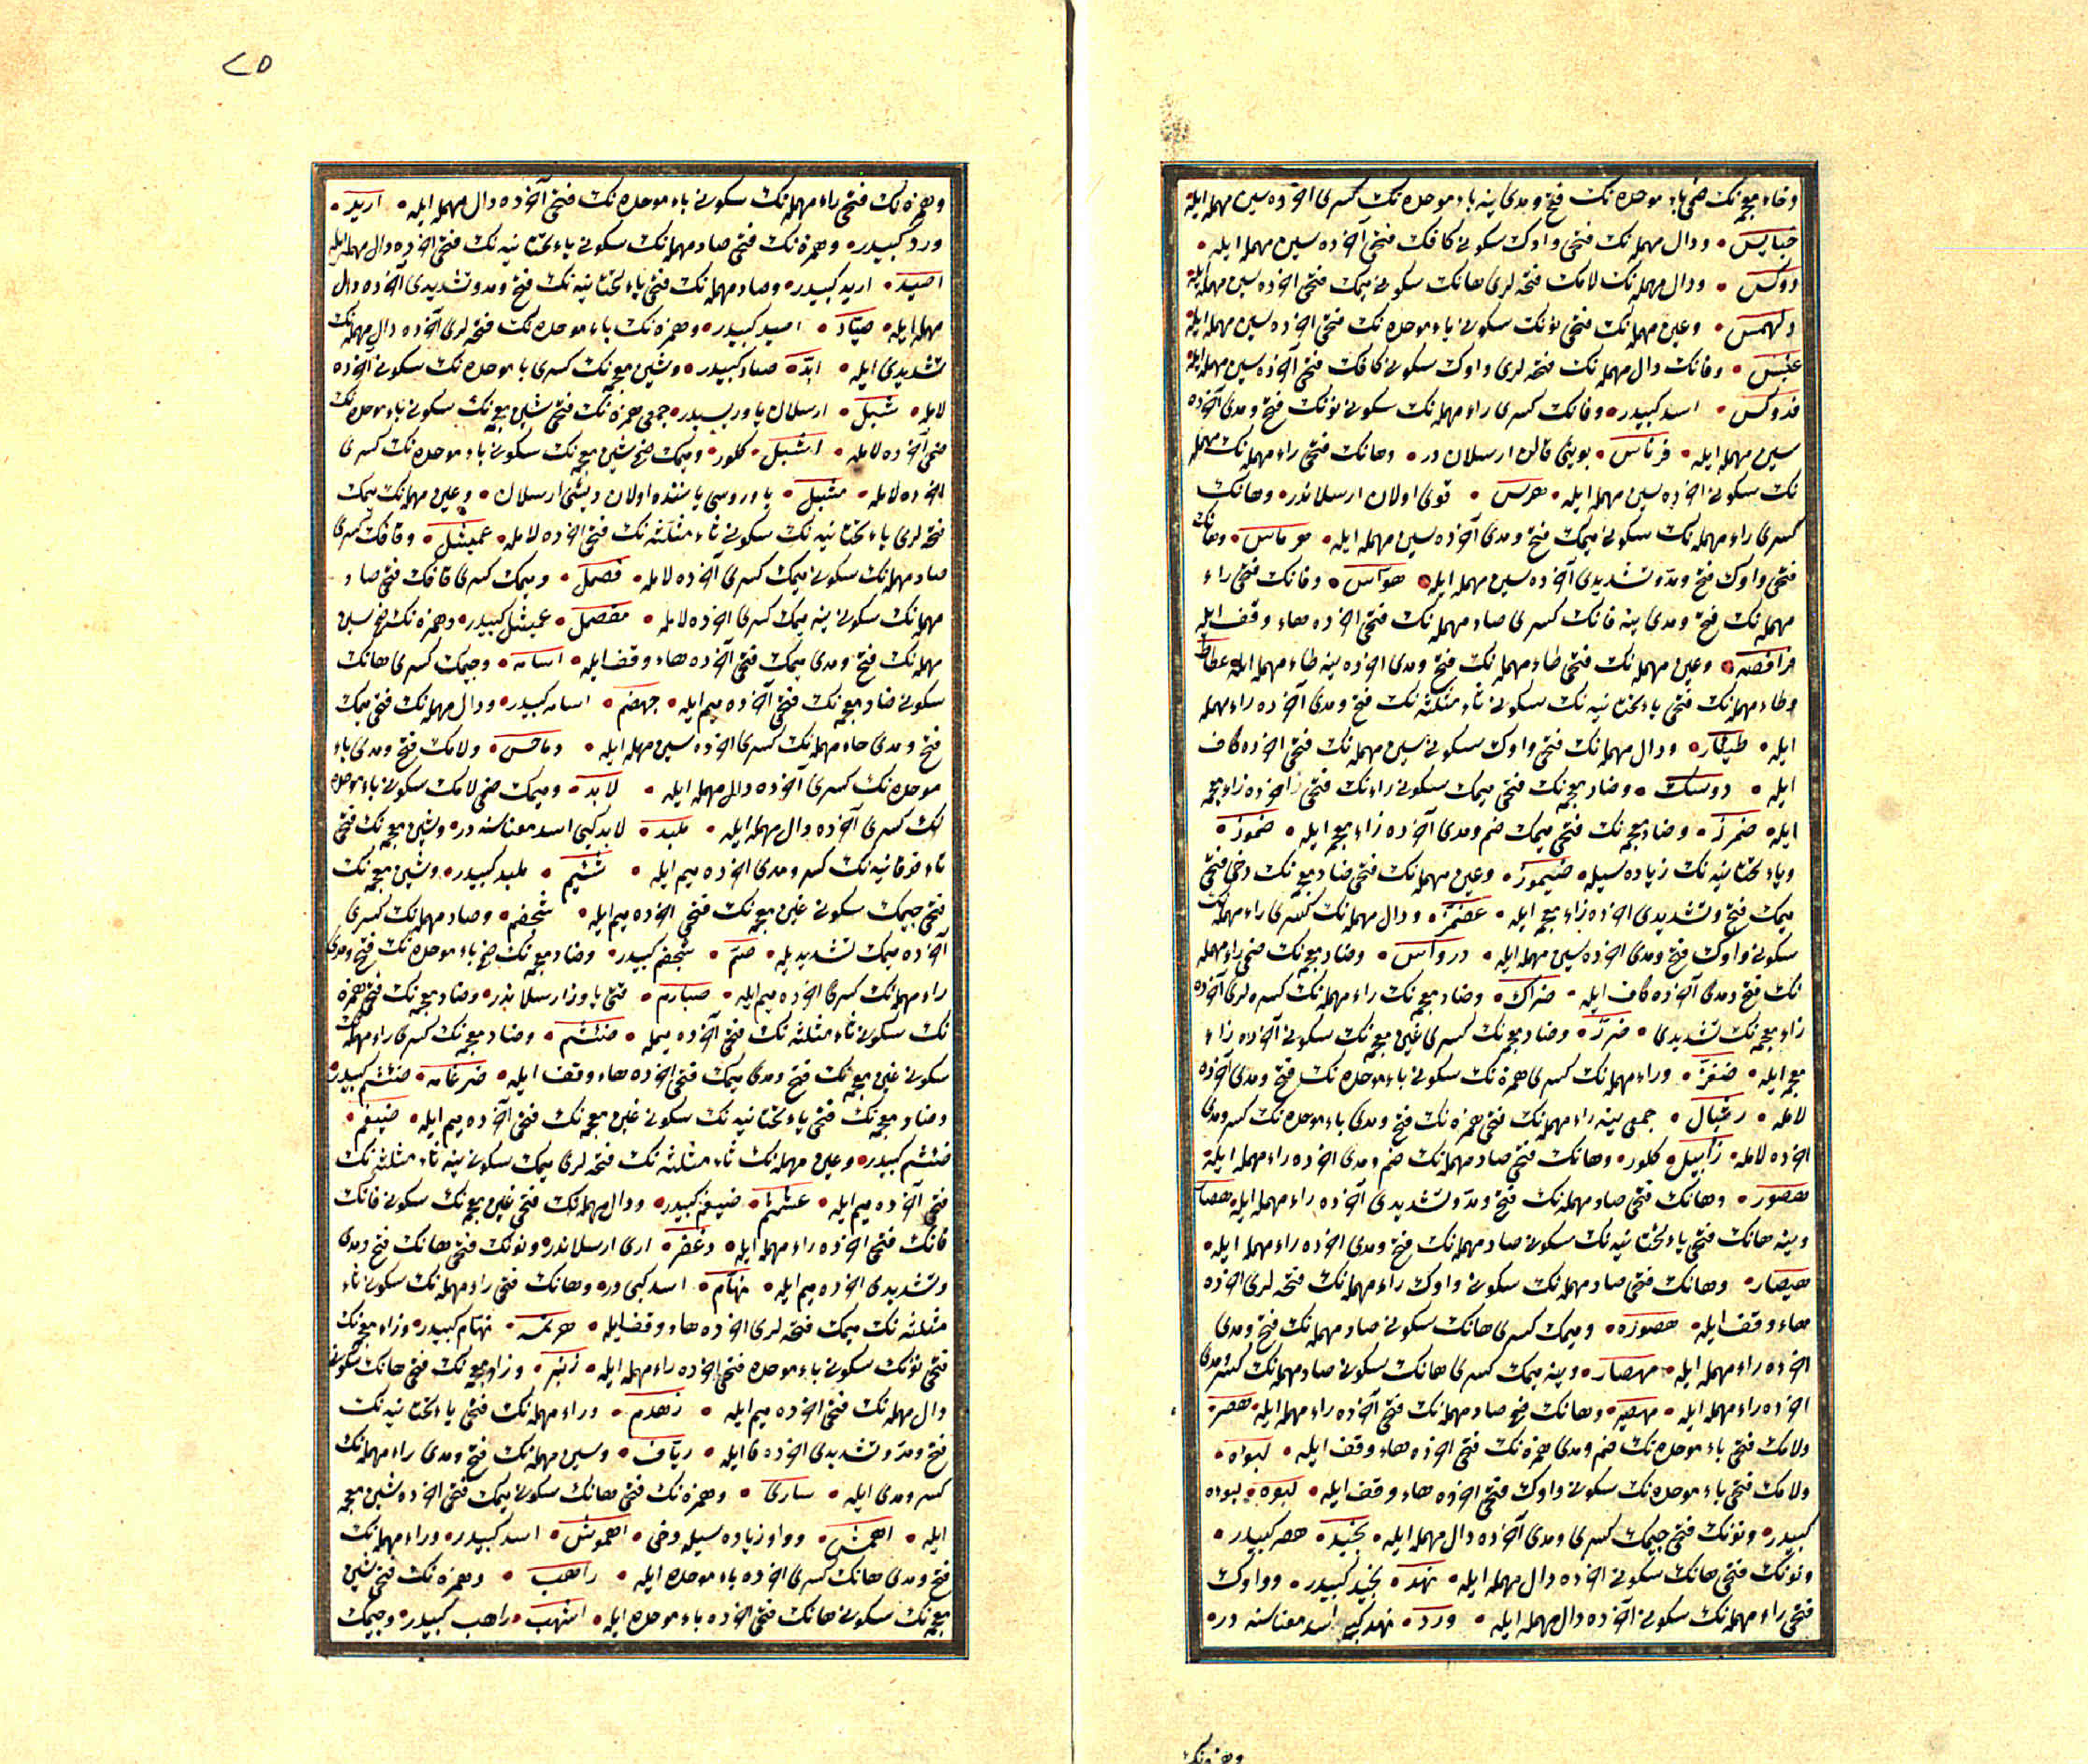 وخاء معجمه نك ضمی باء موحده نك فتح و مدی ینه باء موحده نك كسری اخرده سین مهمله ایله
خبابس • ودال مهمله نك فتحی واوك سكونی كافك فتحی آخرده سین مهمله ایله •
دوكس • ودال مهمله نك لامك فتحه لری هانك سكونی میمك فتحی اخرده سین مهمله ایله
دلهمس • وعین مهمله نك فتحی نونك سكونی باء موحده نك فتحی اخرده سین مهمله ایله
عنبس • وفانك دال مهمله نك فتحه لری واوك سكونی كافك فتحی آخرده سین مهمله ایله
فدوكس • اسد كبیدر • وفانك كسری راء مهمله نك سكونی نونك فتح و مدی آخرده
سین مهمله ایله • فرناس • بوینی قالن ارسلان در • وهانك فتحی راء مهمله نك میمك
نك سكونی اخرده سین مهمله ایله • هرس • قوی اولان ارسلاندر • وهانك
كسری راء مهمله نك سكونی میمك فتح و مدی آخرده سین مهمله ایله • هرماس • وهانك
فتحی واوك فتح ومد وتشدیدی آخرده سین مهمله ایله • هواس • وفانك فتحی راء
مهمله نك فتح و مدی ینه فانك كسری صاد مهمله نك فتحی اخرده هاء وقف ایله
فرافصه • وعین مهمله نك فتحی طاء مهمله نك فتح و مدی اخرده ینه طاء مهمله ایله عطاط
وطاء مهمله نك فتحی یاء تحتانیه نك سكونی ثاء مثلثه نك فتح و مدی آخرده راء مهمله
ایله • طیثار • ودال مهمله نك فتحی واوك سكونی سین مهمله نك فتحی اخرده كاف
ایله • دوسك • وضاد معجمه نك فتحی میمك سكونی راءنك فتحی اخرده زاء معجمه
ایله • ضمرز • وضاد معجمه نك فتحی میمك ضم و مدی آخرده زاء معجمه ایله • ضموز •
ویاء تحتانیه نك زیاده سیله • ضیموز • وعین مهمله نك فتحی ضاد معجمه نك دخی فتحی
میمك فتح وتشدیدی اخرده زاء معجمه ایله • عضمز • ودال مهمله نك كسری راء مهمله نك
سكونی واوك فتح و مدی اخرده سین مهمله ایله • درواس • وضاد معجمه نك ضمی راء مهمله
نك فتح و مدی آخرده كاف ایله • ضراك • وضاد معجمه نك راء مهمله نك كسره لری آخرده
زاء معجمه نك تشدیدی • ضرز • وضاد معجمه نك كسری غین معجمه نك سكونی آخرده زاء
معجمه ایله • ضغز • وراء مهمله نك كسری همزه نك سكونی باء موحده نك فتح و مدی آخرده
لامله • رئبال • جمعی ینه راء مهمله نك فتحی همزه نك فتح و مدی باء موحده نك كسر و مدی
اخرده لامله • رآبیل • كلور • وهانك فتحی صاد مهمله نك ضم و مدی اخرده راء مهمله ایله
هصور • وهانك فتحی صاد مهمله نك فتح ومد وتشدیدی آخرده راء مهمله ایله هصار
وینه هانك فتحی یاء تحتانیه نك سكونی صاد مهمله نك فتح و مدی اخرده راء مهمله ایله •
هیصار • وهانك فتحی صاد مهمله نك سكونی واوك راء مهمله نك فتحه لری اخرده
هاء وقف ایله • هصوره • ومیمك كسری هانك سكونی صاد مهمله نك فتح و مدی
اخرده راء مهمله ایله • مهصار • وینه میمك كسری هانك سكونی صاد مهمله نك كسر و مدی
اخرده راء مهمله ایله • مهصیر • وهانك فتح صاد مهمله نك فتحی آخرده راء مهمله ایله • هصر •
ولامك فتحی باء موحده نك ضم و مدی همزه نك فتحی اخرده هاء وقف ایله • لبوءه •
ولامك فتحی باء موحده نك سكونی واوك فتحی اخرده هاء وقف ایله • لبوه • لبوءه
كبیدر • ونونك فتحی جیمك كسری و مدی آخرده دال مهمله ایله • نجید • هصر كبیدر •
ونونك فتحی هانك سكونی اخرده دال مهمله ایله • نهد • نجید كبیدر • وواوك
فتحی راء مهمله نك سكونی آخرده دال مهمله ایله • ورد • نهد كبی اسد معناسنه در •
وهمزه نك
٢٥
وهمزه نك فتحی راء مهمله نك سكونی باء موحده نك فتحی آخرده دال مهمله ایله • اربد •
ورد كبیدر • وهمزه نك فتحی صاد مهمله نك سكونی یاء تحتانیه نك فتحی اخرده دال مهمله ایله
اصید • اربد كبیدر • وصاد مهمله نك فتحی یاء تحتانیه نك فتح ومد وتشدیدی آخرده دال
مهمله ایله • صیاد • اصید كبیدر • وهمزه نك باء موحده نك فتحه لری آخرده دال مهمله نك
تشدیدی ایله • ابد • صیاد كبیدر • وشین معجمه نك كسری باء موحده نك سكونی آخرده
لامله • شبل • ارسلان یاوریسیدر • جمعی همزه نك فتحی شین معجمه نك سكونی باء موحده نك
ضمی آخرده لامله • اشبل • كلور • ومیمك ضمی شین معجمه نك سكونی باء موحده نك كسری
اخرده لامله • مشبل • یاوروسی یاننده اولان دیشی ارسلان • وعین مهمله نك میمك
فتحه لری یاء تحتانیه نك سكونی ثاء مثلثه نك فتحی اخرده لامله • عمیثل • وقافك كسری
صاد مهمله نك سكونی میمك كسری آخرده لامله • قصمل • ومیمك كسری قافك فتحی صاد
مهمله نك سكونی ینه میمك كسری اخرده لامله • مقصمل • عمیثل كبیدر • وهمزه نك ضمی سین
مهمله نك فتح و مدی میمك فتحی آخرده هاء وقف ایله • اسامه • وجیمك كسری هانك
سكونی ضاد معجمه نك فتحی آخرده میم ایله • جهضم • اسامه كبیدر • ودال مهمله نك فتحی میمك
فتح و مدی حاء مهمله نك كسری اخرده سین مهمله ایله • دماحس • ولامك فتح و مدی باء
موحده نك كسری آخرده دال مهمله ایله • لابد • ومیمك ضمی لامك سكونی باء موحده
نك كسری آخرده دال مهمله ایله • ملبد • لابد كبی اسد معناسنه در • وشین معجمه نك فتحی
تاء فوقانیه نك كسر و مدی اخرده میم ایله • شتیم • ملبد كبیدر • وشین معجمه نك
فتحی جیمك سكونی غین معجمه نك فتحی اخرده میم ایله • شجغم • وصاد مهمله نك كسری
آخرده میمك تشدیدیله • صم • شجغم كبیدر • وضاد معجمه نك ضمی باء موحده نك فتح و مدی
راء مهمله نك كسری اخرده میم ایله • ضبارم • قتی یاوز ارسلاندر • وضاد معجمه نك فتحی همزه
نك سكونی ثاء مثلثه نك فتحی آخرده میمله • ضئثم • وضاد معجمه نك كسری راء مهمله نك
سكونی غین معجمه نك فتح و مدی میمك فتحی اخرده هاء وقف ایله • ضرغامه • ضئثم كبیدر
وضاد معجمه نك فتحی یاء تحتانیه نك سكونی غین معجمه نك فتحی آخرده میم ایله • ضیغم •
ضئثم كبیدر • وعین مهمله نك ثاء مثلثه نك فتحه لری میمك سكونی ینه ثاء مثلثه نك
فتحی آخرده میم ایله • عثمثم • ضیغم كبیدر • ودال مهمله نك فتحی غین معجمه نك سكونی فانك
فانك فتحی اخرده راء مهمله ایله • دغفر • اری ارسلاندر • ونونك فتحی هانك فتح و مدی
وتشدیدی اخرده میم ایله • نهام • اسد كبی در • وهانك فتحی راء مهمله نك سكونی ثاء
مثلثه نك میمك فتحه لری اخرده هاء وقف ایله • هرثمه • نهام كبیدر • وزاء معجمه نك
فتحی نونك سكونی باء موحده فتحی اخرده راء مهمله ایله • زنبر • وزاء معجمه نك فتحی هانك سكونی
دال مهمله نك فتحی اخرده میم ایله • زهدم • وراء مهمله نك فتحی یاء تحتانیه نك
فتح ومد وتشدیدی اخرده فا ایله • ریاف • وسین مهمله نك فتح و مدی راء مهمله نك
كسر و مدی ایله • ساری • وهمزه نك فتحی هانك سكونی میمك فتحی اخرده شین معجمه
ایله • اهمش • وواو زیاده سیله دخی • اهموش • اسد كبیدر • وراء مهمله نك
فتح و مدی هانك كسری اخرده باء موحده ایله • راهب • وهمزه نك فتحی شین
معجمه نك سكونی هانك فتحی اخرده باء موحده ایله • اشهب • راهب كبیدر • وجیمك